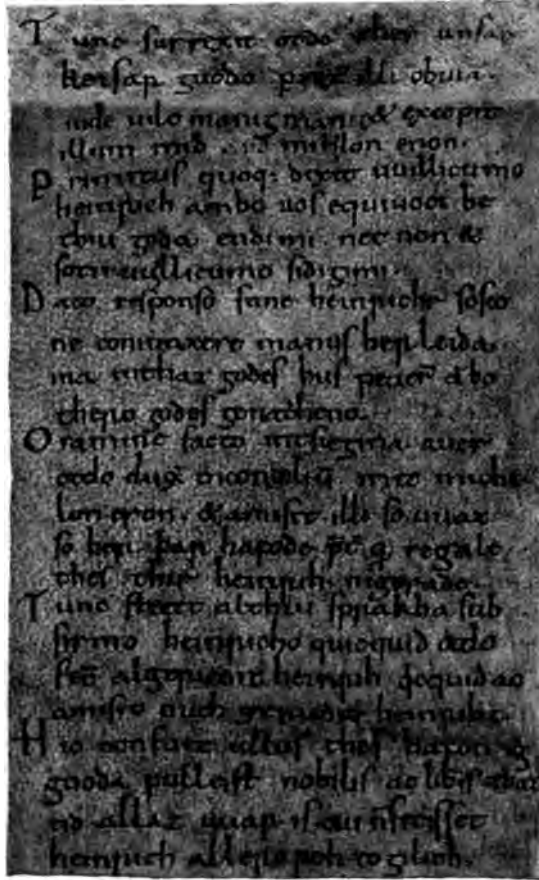 Tunc surrexit otdo ther unsar
keisar guodo illi obuia
inde uilo manig man & excepit
illum mid mihilon eron.
Primitus quoq: dixit uuillicumo
heinrich ambo uos equiuoci be
thiu goda endi mi. nec non &
sotii uuillicumo sidigimi.
Dato responso fane heinriche sosco
ne coniunxere manus her leida
ina inthaz godes hus
thero godes genatheno.
Oramine facto intsieg ina auer
otdo dux̄ inconciliū mit miche
lon eron. & amisit illi so uuaz
so her thar hafode p̄t q̄ regale
thes thir heinrich nigerade.
Tunc stetit althiu sprakha sub
firmo heinricho quicquid otdo
fec̄ algeriediz heinrih q̄cquid ac
amisit ouch geriediz heinrihc.
Hic non fuit ullus thes hafon ig
guoda fulleist nobilis ac libis thaz
tid allaz uuar. is cui n̄fecisset
heinrich allero reh to gilich.